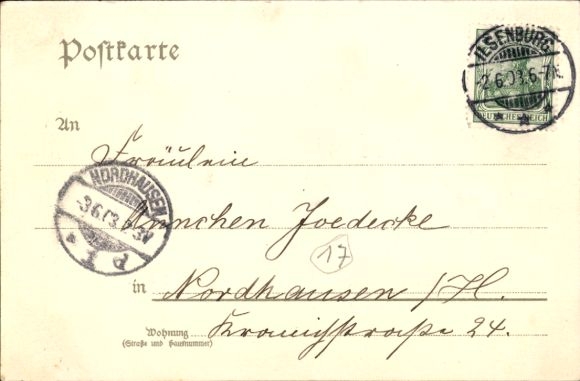 Postkarte
ILSENBURG
2.6.03.6-7N.
DEUTSCHES REICH
An
Fräulein
NORDHAUSEN
-3.6.03.
Ännchen Joedecke
17
in Nordhausen / H.
Wohnung
(Straße und Hausnummer)
Kranichstraße 24.